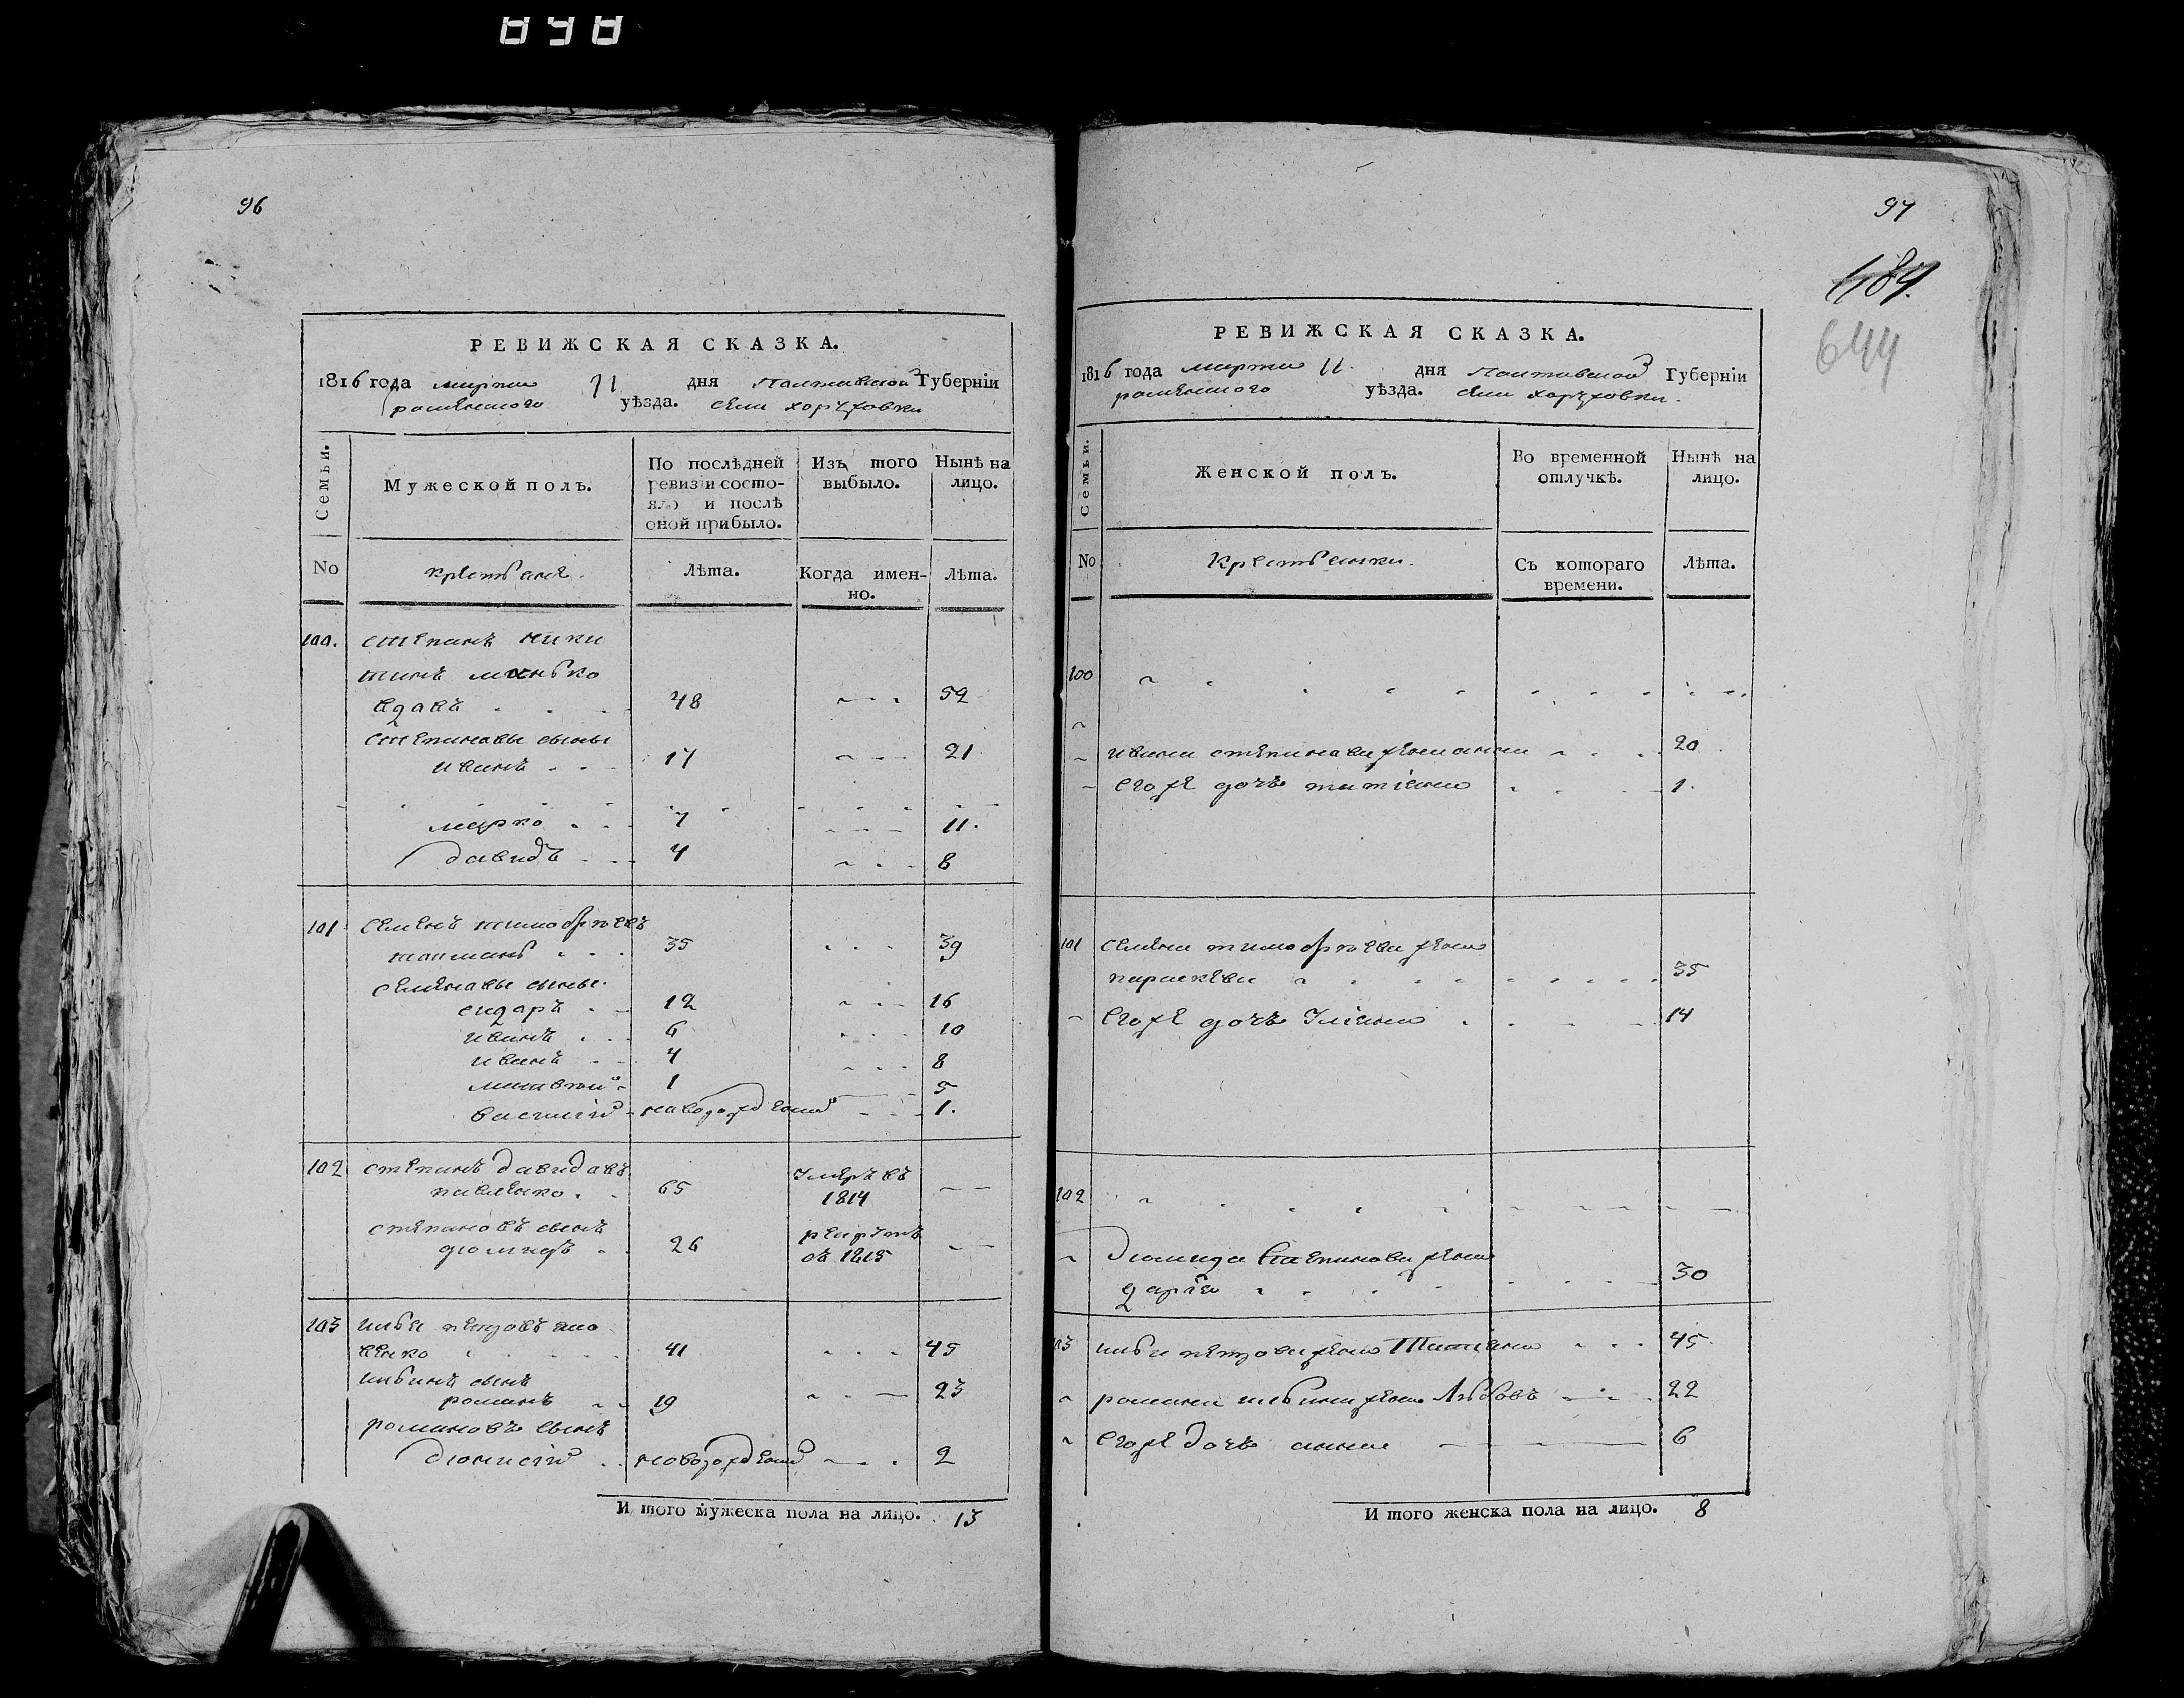 898
96
РЕВИЖСКАЯ СКАЗКА.
1816 года марта 11 дня Полтавской Губерніи
роменского уѣзда. села хоружовки
Семьи.
Мужеской полъ.
По послѣдней ревизіи состояло и послѣ оной прибыло.
Изъ того выбыло.
Нынѣ на лицо.
No
крестьяне.
Лѣта.
Когда именно.
Лѣта.
100. степанъ ники
тинъ манько
вдавъ 48 52
степановы сыны
иванъ 17 21
марко 7 11.
давидъ 4 8
101 семенъ тимофѣевъ
35 39
семеновы сыны.
сидоръ 12 16
иванъ 6 10
иванъ 4 8
матвѣй 1 5
василій новорожденый 1.
102 степанъ давидовъ
павленко. 65 Умеръ въ 1814
степановъ сынъ
диомидъ 26 рекрутъ въ 1815
103 илья петровъ
венко 41 45
ильинъ сынъ
романъ 19 23
романовъ сынъ
дионисій новорожденый 2
И того мужеска пола на лицо. 13
97
184.
644
РЕВИЖСКАЯ СКАЗКА.
1816 года марта 11. дня Полтавской Губерніи
роменского уѣзда. села хоружовки.
Семьи.
Женской полъ.
Во временной отлучкѣ.
Нынѣ на лицо.
No
Крестьянки.
Съ котораго времени.
Лѣта.
100
ивана степанова жена анна 20
Его же дочь татіана 1.
101 семена тимофѣева жена
параскева 35
Его же дочь Уліана 14
102
диомида Степанова жена
дарія 30
103 ильи петрова жена Татіана 45
романа ильина жена Любовь 22
Его же дочь анна 6
И того женска пола на лицо. 8